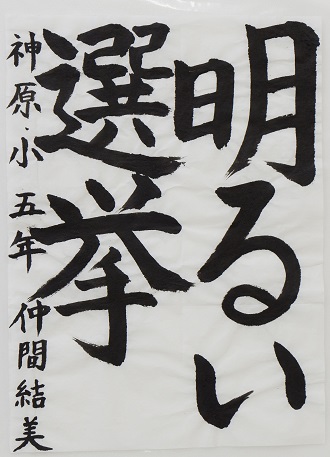 明るい
選挙
神原・小 五年 仲間結美